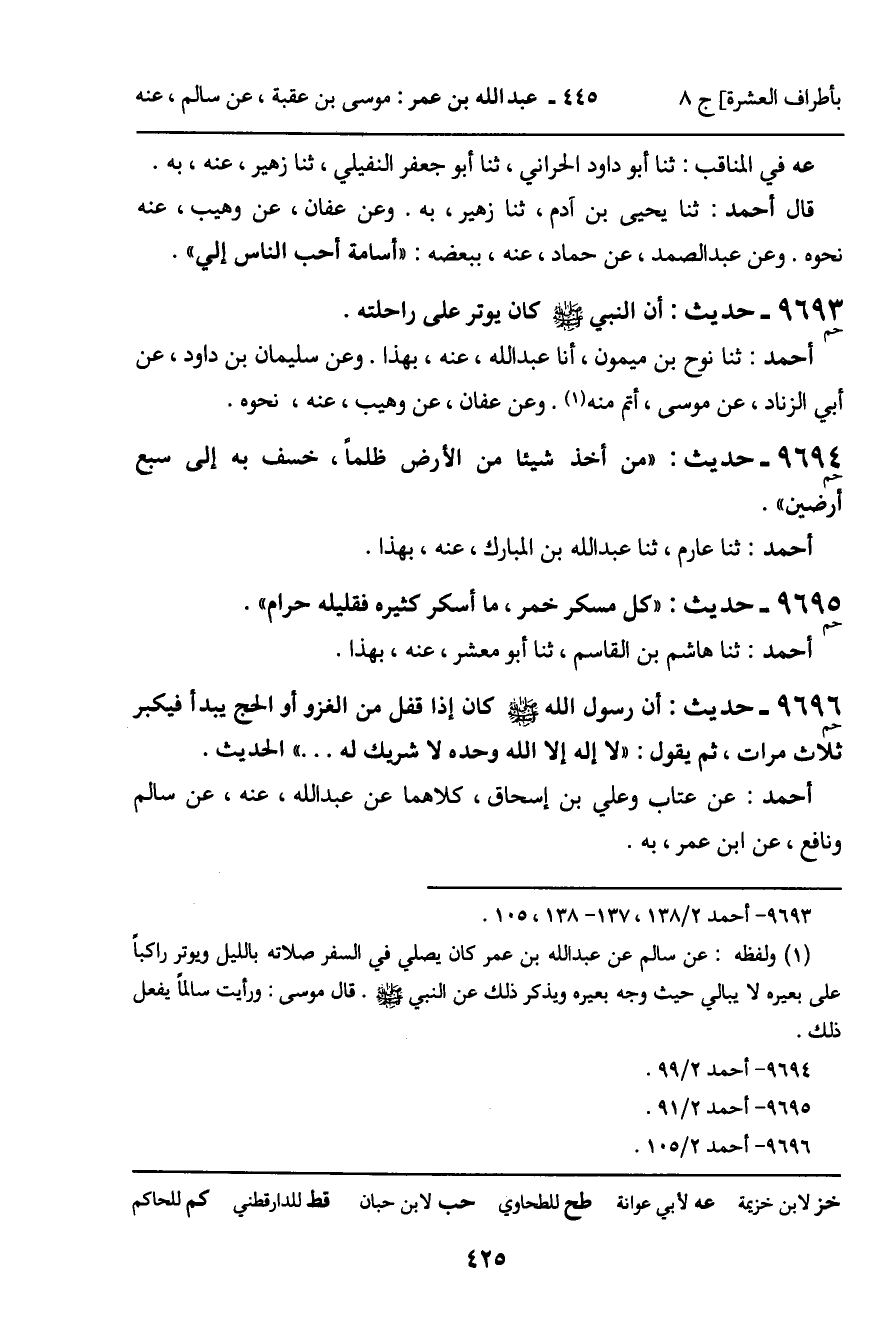 بأطراف العشرة] ج ٨ ٤٤٥ ـ عبدالله بن عمر : موسى بن عقبة ، عن سالم ، عنه
عه في المناقب : ثنا أبو داود الحراني ، ثنا أبو جعفر النفيلي ، ثنا زهير ، عنه ، به .
قال أحمد : ثنا يحيى بن آدم ، ثنا زهير ، به . وعن عفان ، عن وهيب ، عنه
نحوه . وعن عبدالصمد ، عن حماد ، عنه ، ببعضه : «أسامة أحب الناس إلي» .
٩٦٩٣ ـ حديث : أن النبي ﷺ كان يوتر على راحلته .
حم
أحمد : ثنا نوح بن ميمون ، أنا عبدالله ، عنه ، بهذا . وعن سليمان بن داود ، عن
أبي الزناد ، عن موسى ، أتم منه(١) . وعن عفان ، عن وهيب ، عنه ، نحوه .
٩٦٩٤ ـ حديث : «من أخذ شيئا من الأرض ظلماً ، خسف به إلى سبع
حم
أرضين» .
أحمد : ثنا عارم ، ثنا عبدالله بن المبارك ، عنه ، بهذا .
٩٦٩٥ ـ حديث : «كل مسكر خمر ، ما أسكر كثيره فقليله حرام» .
حم
أحمد : ثنا هاشم بن القاسم ، ثنا أبو معشر ، عنه ، بهذا .
٩٦٩٦ ـ حديث : أن رسول الله ﷺ كان إذا قفل من الغزو أو الحج يبدأ فيكبر
حم
ثلاث مرات ، ثم يقول : «لا إله إلا الله وحده لا شريك له ...» الحديث .
أحمد : عن عتاب وعلي بن إسحاق ، كلاهما عن عبدالله ، عنه ، عن سالم
ونافع ، عن ابن عمر ، به .
٩٦٩٣- أحمد ١٣٨/٢ ، ١٣٧- ١٣٨ ، ١٠٥ .
(١) ولفظه : عن سالم عن عبدالله بن عمر كان يصلي في السفر صلاته بالليل ويوتر راكباً
على بعيره لا يبالي حيث وجه بعيره ويذكر ذلك عن النبي ﷺ . قال موسى : ورأيت سالماً يفعل
ذلك .
٩٦٩٤- أحمد ٩٩/٢ .
٩٦٩٥- أحمد ٩١/٢ .
٩٦٩٦- أحمد ١٠٥/٢ .
خز لابن خزيمة عه لأبي عوانة طح للطحاوي حب لابن حبان قط للدارقطني كم للحاكم
٤٢٥